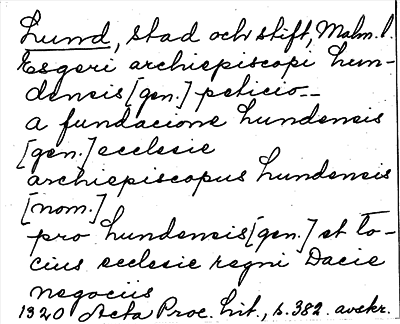 Lund, stad och stift, Malm. l.
Esgeri archiepiscopi Lun-
densis [gen.] peticio --
a fundacione Lundensis
[gen.] ecclesie
archiepiscopus Lundensis
[nom.]
pro Lundensis [gen.] et to-
cius ecclesie regni Dacie
negociis
1320 Acta Proc. Lit., s. 382. avskr.